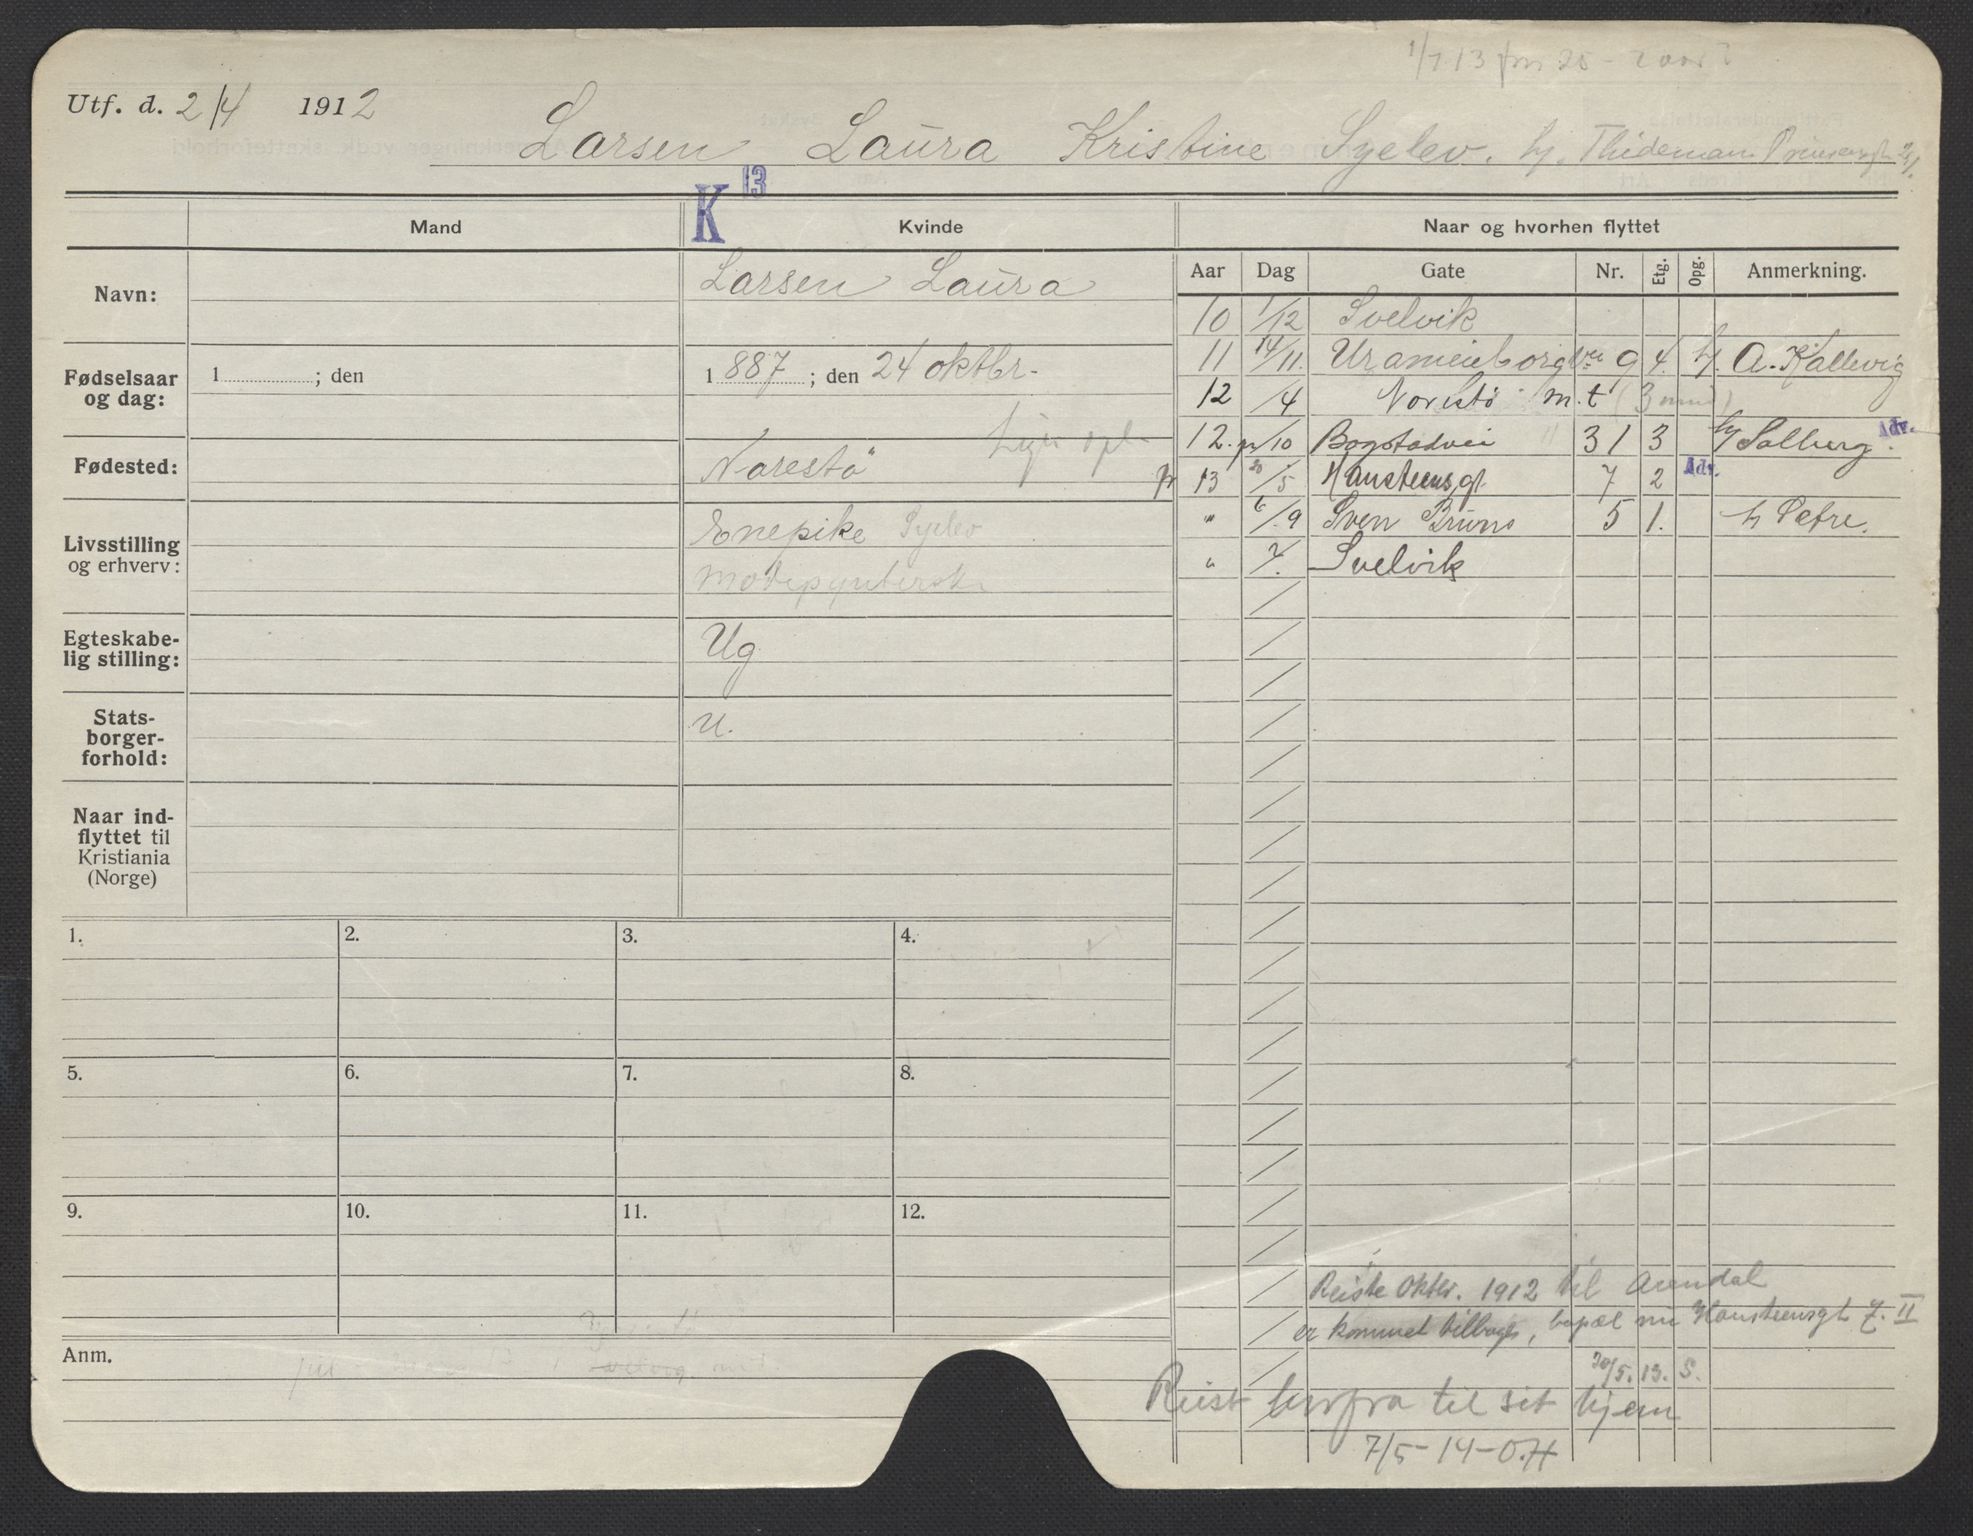 1/7 13
Utf. d. 2/4 1912
Larsen Laura Kristine Syelev. hj. Thideman Prinsensgt
K 13
Mand
Kvinde
Naar og hvorhen flyttet
Aar Dag Gate Nr. Etg. Opg. Anmerkning.
Navn: Larsen Laura
Fødselsaar og dag: 1 ; den
1887 ; den 24 oktbr.
Fødested: Narestö
Livsstilling og erhverv: Enepike Syelev
Egteskabelig stilling: Ug
Statsborgerforhold: u.
Naar indflyttet til Kristiania (Norge)
10 1/12 Svelvik
11 14/11. Uranieborgvei 9 4. hj. A. Kallevig
12 /4 Narestö m.t (3 mnd)
12. pr /10 Bogstadvei 31 3 hj Solberg. Adv.
pr 13 20/5 Hansteensgt. 7 2 Adv.
" 6/9 Sven Bruns 5 1. h Petre.
" 7/. Svelvik
1. 2. 3. 4.
5. 6. 7. 8.
9. 10. 11. 12.
Anm.
Reiste oktbr. 1912 til Arendal
er kommet tilbage, bopæl nu Hansteensgt 7. II
20/5. 13. S.
Reist herfra til sit hjem
7/5-14-O.H